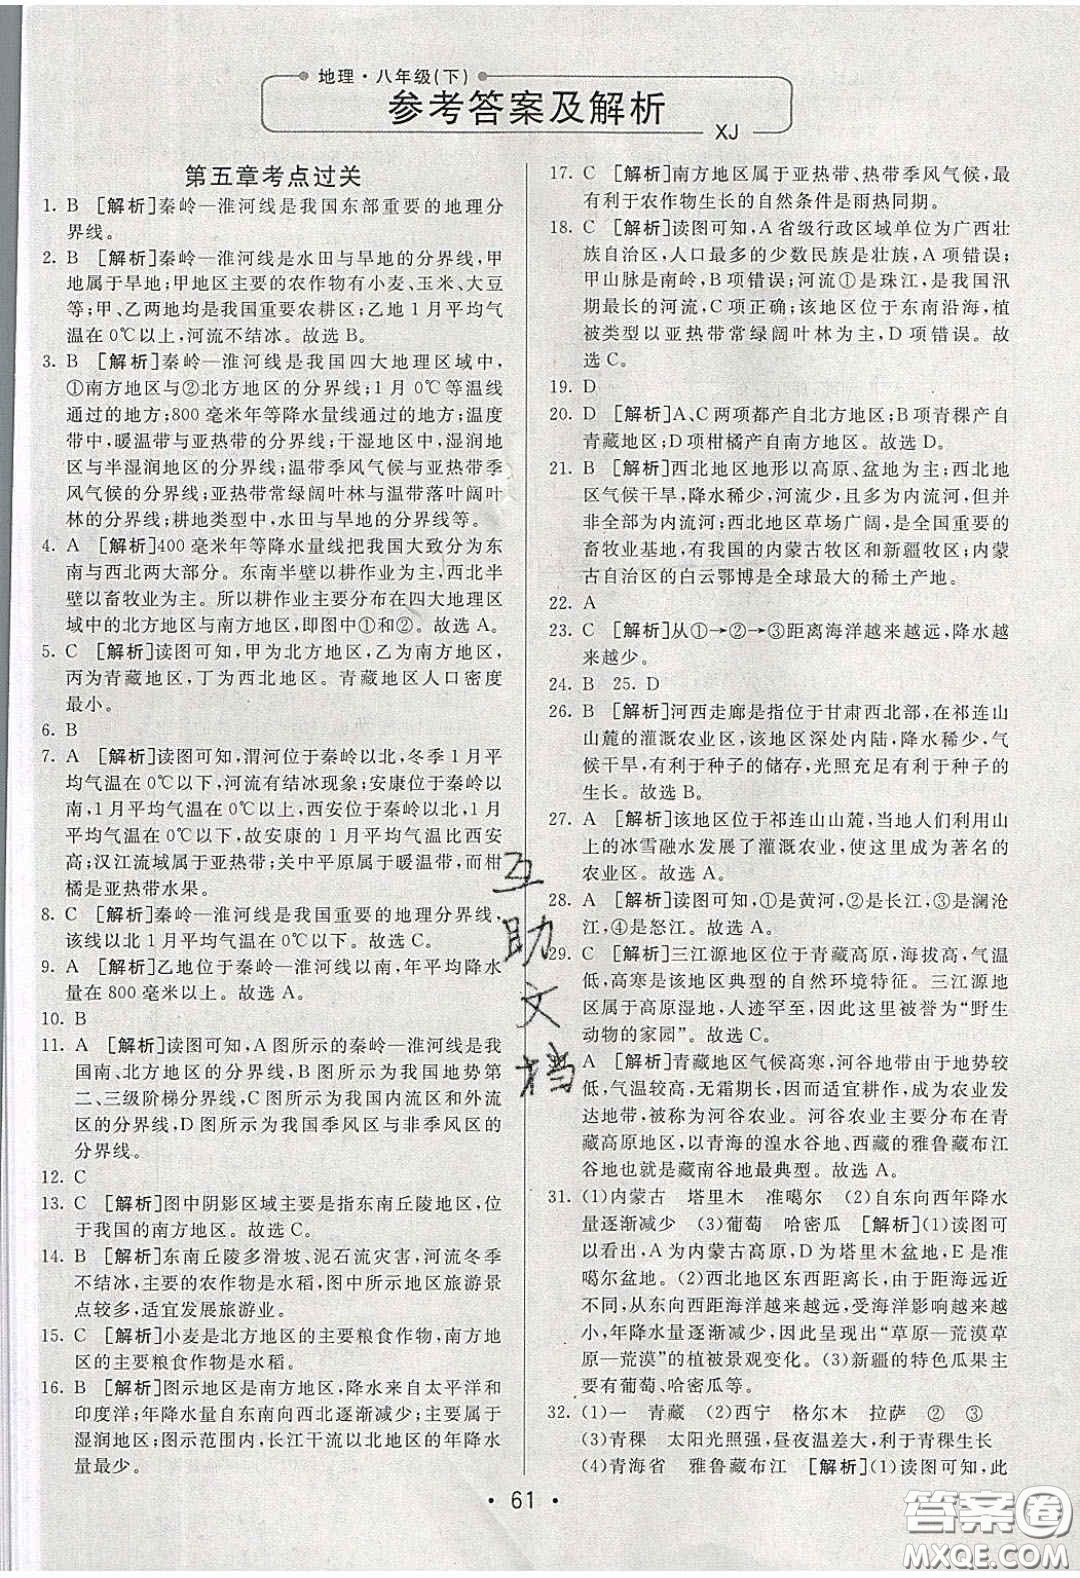 地理·八年级(下)
参考答案及解析
XJ
第五章考点过关
1. B [解析]秦岭—淮河线是我国东部重要的地理分
界线。
2. B [解析]秦岭—淮河线是水田与旱地的分界线,甲
地属于旱地;甲地区主要的农作物有小麦、玉米、大豆
等;甲、乙两地均是我国重要农耕区;乙地1月平均气
温在0℃以上,河流不结冰。故选B。
3. B [解析]秦岭—淮河线是我国四大地理区域中,
①南方地区与②北方地区的分界线;1月0℃等温线
通过的地方;800毫米年等降水量线通过的地方;温度
带中,暖温带与亚热带的分界线;干湿地区中,湿润地区
与半湿润地区的分界线;温带季风气候与亚热带季
风气候的分界线;亚热带常绿阔叶林与温带落叶阔叶
林的分界线;耕地类型中,水田与旱地的分界线等。
4. A [解析]400毫米年等降水量线把我国大致分为东
南与西北两大部分。东南半壁以耕作业为主,西北半
壁以畜牧业为主。所以耕作业在四大地理区
域中的北方地区与南方地区,即图中①和②。故选A。
5. C [解析]读图可知,甲为北方地区,乙为南方地区,
丙为青藏地区,丁为西北地区。青藏地区人口密度
最小。
6. B
7. A [解析]读图可知,渭河位于秦岭以北,冬季1月
平均气温在0℃以下,河流有结冰现象;安康位于秦岭以
南,1月平均气温在0℃以上,西安位于秦岭以北,1月
平均气温在0℃以下,故安康的1月平均气温比西安
高;汉江流域属于亚热带;关中平原属于暖温带,而柑
橘是亚热带水果。
8. C [解析]秦岭—淮河线是我国重要的地理分界线,
该线以北1月平均气温低于0℃。故选C。
9. A [解析]乙地位于秦岭—淮河线以南,年平均降水
量在800毫米以上。故选A。
10. B
11. A [解析]读图可知,A图所示的秦岭—淮河线是我
国南、北方地区的分界线,B图所示为我国地势第
二、三级阶梯分界线,C图所示为我国内流区和外流区
的分界线,D图所示为我国季风区与非季风区的
分界线。
12. C
13. C [解析]图中阴影区域主要是指东南丘陵地区,位
于我国的南方地区。故选C。
14. B [解析]东南丘陵多滑坡、泥石流灾害,河流冬季
不结冰,主要的农作物是水稻。图中所示地区旅游景
点较多,适宜发展旅游业。
15. C [解析]小麦是北方地区的主要粮食作物,南方地
区的主要粮食作物是水稻。
16. B [解析]图示地区是南方地区,降水来自太平洋和
印度洋;年降水量自东南向西北逐渐减少,主要属于
湿润地区;图示范围内,长江干流以北地区的年降水
量最少。
17. C [解析]南方地区属于亚热带、热带季风气候,最
有利于农作物生长的自然条件是雨热同期。
18. C [解析]读图可知,A省级行政区域单位为广西壮
族自治区,人口最多的少数民族是壮族,A项错误;
甲山脉是南岭,B项错误;河流①是珠江,是我国汛
期最长的河流,C项正确;该地区位于东南沿海,植
被类型以亚热带常绿阔叶林为主,D项错误。故
选C。
19. D
20. D [解析]A、C两项都产自北方地区;B项青稞产自
青藏地区;D项柑橘产自南方地区。故选D。
21. B [解析]西北地区地形以高原、盆地为主;西北地
区气候干旱,降水稀少,河流少,且多为内流河,但并
非全部为内流河;西北地区草场广阔,是我国重要的
畜牧业基地,有我国的内蒙古牧区和新疆牧区;内蒙
古自治区的白云鄂博是全球最大的稀土产地。
22. A
23. C [解析]从①→②→③距离海洋越来越远,降水越
来越少。
24. B 25. D
26. B [解析]河西走廊是指位于甘肃西北部,在祁连山
山麓的灌溉农业区,该地区深处内陆,降水稀少,
气候干旱,有利于种子的储存,光照充足有利于种子的
生长。故选B。
27. A [解析]该地区位于祁连山山麓,当地人们利用山
上的冰雪融水发展了灌溉农业,使这里成为著名的
农业区。故选A。
28. A [解析]读图可知,①是黄河,②是长江,③是澜沧
江,④是怒江。故选A。
29. C [解析]三江源地区位于青藏高原,海拔高,气温
低,高寒是该地区典型的自然环境特征。三江源地
区多属于高原湿地,人迹罕至,因此这里被誉为“野生
动物的家园”。故选C。
A [解析]青藏地区气候高寒,河谷地带由于地势较
低,气温较高,无霜期长,因而适宜耕作,成为农业发
达地带,被称为河谷农业。河谷农业主要分布在青
藏高原地区,以青海的湟水谷地、西藏的雅鲁藏布江
谷地也就是藏南谷地最典型。故选A。
31. (1)内蒙古 塔里木 准噶尔 (2)自东向西年降水
量逐渐减少 (3)葡萄 哈密瓜 [解析](1)读图可
以看出,A为内蒙古高原,D为塔里木盆地,E是准
噶尔盆地。(2)西北地区东西距离长,由于距海远近
不同,从东向西距海洋越来越远,受海洋影响越来越
小,年降水量逐渐减少,因此呈现出“草原—荒漠草
原—荒漠”的植被景观变化。(3)新疆的特色瓜果主
要有葡萄、哈密瓜等。
32. (1)一 青藏 (2)西宁 格尔木 拉萨 ② ③
(3)青稞 太阳光照强,昼夜温差大,利于青稞生长
(4)青海省 雅鲁藏布江 [解析](1)读图可知,此
·61·
互助文档
答案圈
MXQE.COM